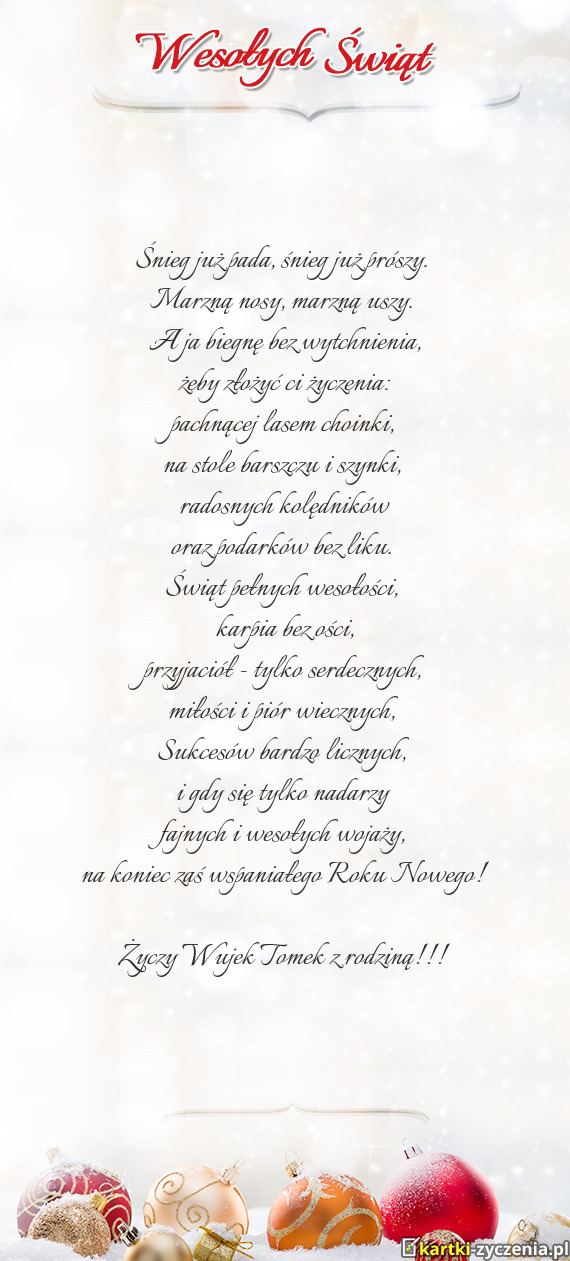 Wesołych Świąt
Śnieg już pada, śnieg już prószy.
Marzną nosy, marzną uszy.
A ja biegnę bez wytchnienia,
żeby złożyć ci życzenia:
pachnącej lasem choinki,
na stole barszczu i szynki,
radosnych kolędników
oraz podarków bez liku.
Świąt pełnych wesołości,
karpia bez ości,
przyjaciół - tylko serdecznych,
miłości i piór wiecznych,
Sukcesów bardzo licznych,
i gdy się tylko nadarzy
fajnych i wesołych wojaży,
na koniec zaś wspaniałego Roku Nowego!
Życzy Wujek Tomek z rodziną!!!
kartki-zyczenia.pl